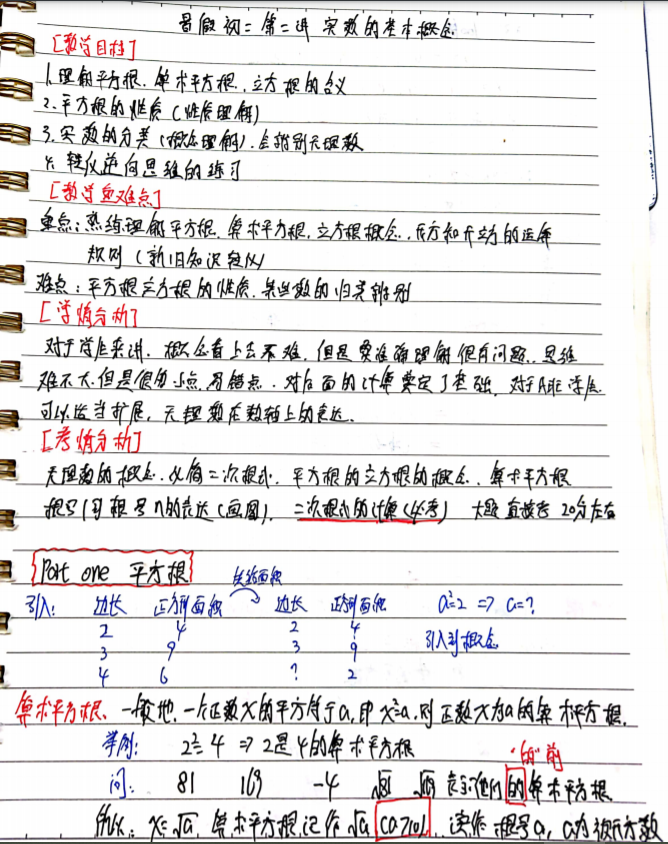 暑假初二第二讲 实数的基本概念
[教学目标]
1.理解平方根、算术平方根、立方根的含义
2.平方根的性质(性质理解)
3.实数的分类(概念理解),会辨别无理数
4.转化逆向思维的练习
[教学重难点]
重点:熟练理解平方根、算术平方根,立方根概念、乘方和开方的运算
规则(新旧知识转化)
难点:平方根立方根的性质,某些数的归类辨别
[学情分析]
对于学生来讲,概念看上去不难,但是要准确理解很有问题,思维
难不大,但是很多小点易错点,对后面的计算奠定了基础,对于A班学生
可以适当扩展,无理数在数轴上的表达。
[考情分析]
无理数的概念,必有二次根式,平方根的立方根的概念、算术平方根
根号1到根号n的表达(画图),二次根式的计算(必考) 大题直接考20分左右
Part one 平方根
引入: 边长 正方形面积 边长 正方形面积 a²=2 => a=?
2 4 2 4 引入到概念
3 9 3 9
4 6 ? 2
算术平方根、一般地,一个正数x的平方等于a,即x²=a,则正数x为a的算术平方根.
举例: 2²=4 => 2是4的算术平方根
"的"前
问: 81 169 -4 √81 √169 表示他们的算术平方根
所以: x=√a,算术平方根记作√a (a≥0),读作:根号a,a为被开方数